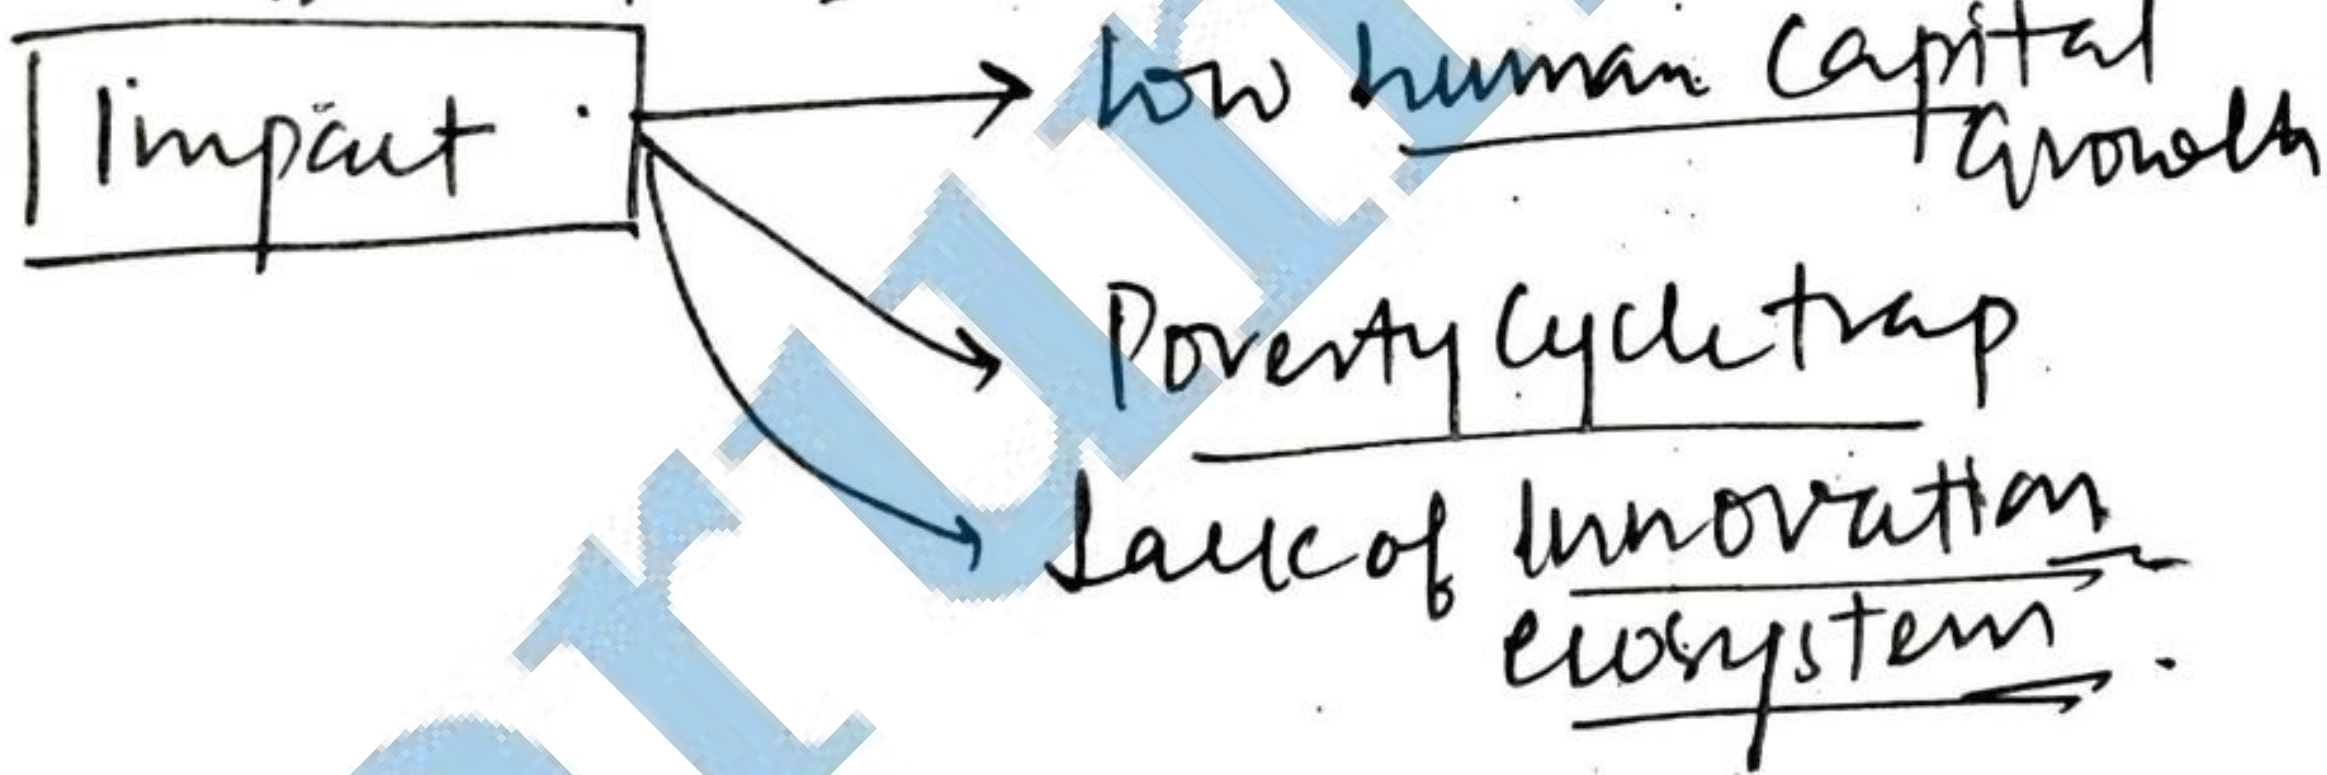 Impact
low human capital
Growth
Poverty cycle trap
Lack of Innovation
ecosystem.